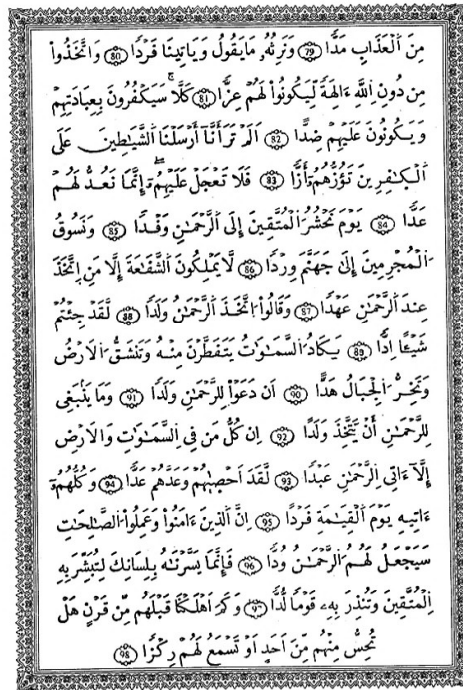 مِنَ اَ۬لْعَذَابِ مَدّٗا 79 وَنَرِثُهُۥ مَا يَقُولُ وَيَاتِينَا فَرْدٗا 80 وَاتَّخَذُواْ
مِن دُونِ اِ۬للَّهِ ءَالِهَةٗ لِّيَكُونُواْ لَهُمْ عِزّٗا 81 كَلَّا سَيَكْفُرُونَ بِعِبَادَتِهِمْ
وَيَكُونُونَ عَلَيْهِمْ ضِدّاً 82 اَلَمْ تَرَ أَنَّآ أَرْسَلْنَا اَ۬لشَّيَٰطِينَ عَلَى
اَ۬لْكٰ۪فِرِينَ تَؤُزُّهُمُۥٓ أَزّٗا 83 فَلَا تَعْجَلْ عَلَيْهِمُۥٓ إِنَّمَا نَعُدُّ لَهُمْ
عَدّٗا 84 يَوْمَ نَحْشُرُ اُ۬لْمُتَّقِينَ إِلَى اَ۬لرَّحْمَٰنِ وَفْدٗا 85 وَنَسُوقُ
اُ۬لْمُجْرِمِينَ إِلَىٰ جَهَنَّمَ وِرْدٗا 86 لَّا يَمْلِكُونَ اَ۬لشَّفَٰعَةَ إِلَّا مَنِ اِ۪تَّخَذَ
عِندَ اَ۬لرَّحْمَٰنِ عَهْدٗا 87 وَقَالُواْ اُ۪تَّخَذَ اَ۬لرَّحْمَٰنُ وَلَدٗا 88 لَّقَدْ جِئْتُمْ
شَيْـٔاً اِدّٗا 89 يَكَادُ اُ۬لسَّمَٰوَٰتُ يَتَفَطَّرْنَ مِنْهُ وَتَنشَقُّ اُ۬لَارْضُ
وَتَخِرُّ اُ۬لْجِبَالُ هَدّاً 90 اَن دَعَوْاْ لِلرَّحْمَٰنِ وَلَدٗا 91 وَمَا يَنۢبَغِي
لِلرَّحْمَٰنِ أَنْ يَّتَّخِذَ وَلَداً 92 اِن كُلُّ مَن فِي اِ۬لسَّمَٰوَٰتِ وَالَارْضِ
إِلَّآ ءَاتِي اِ۬لرَّحْمَٰنِ عَبْدٗا 93 لَّقَدَ اَحْصَيٰهُمْ وَعَدَّهُمْ عَدّٗا 94 وَكُلُّهُمُۥٓ
ءَاتِيهِ يَوْمَ اَ۬لْقِيَٰمَةِ فَرْداً 95 اِنَّ اَ۬لذِينَ ءَامَنُواْ وَعَمِلُواْ اُ۬لصَّٰلِحَٰتِ
سَيَجْعَلُ لَهُمُ اُ۬لرَّحْمَٰنُ وُدّٗا 96 فَإِنَّمَا يَسَّرْنَٰهُ بِلِسَانِكَ لِتُبَشِّرَ بِهِ
اِ۬لْمُتَّقِينَ وَتُنذِرَ بِهِۦ قَوْمٗا لُّدّٗا 97 وَكَمَ اَهْلَكْنَا قَبْلَهُم مِّن قَرْنٍ هَلْ
تُحِسُّ مِنْهُم مِّنَ اَحَدٍ اَوْ تَسْمَعُ لَهُمْ رِكْزاً 98